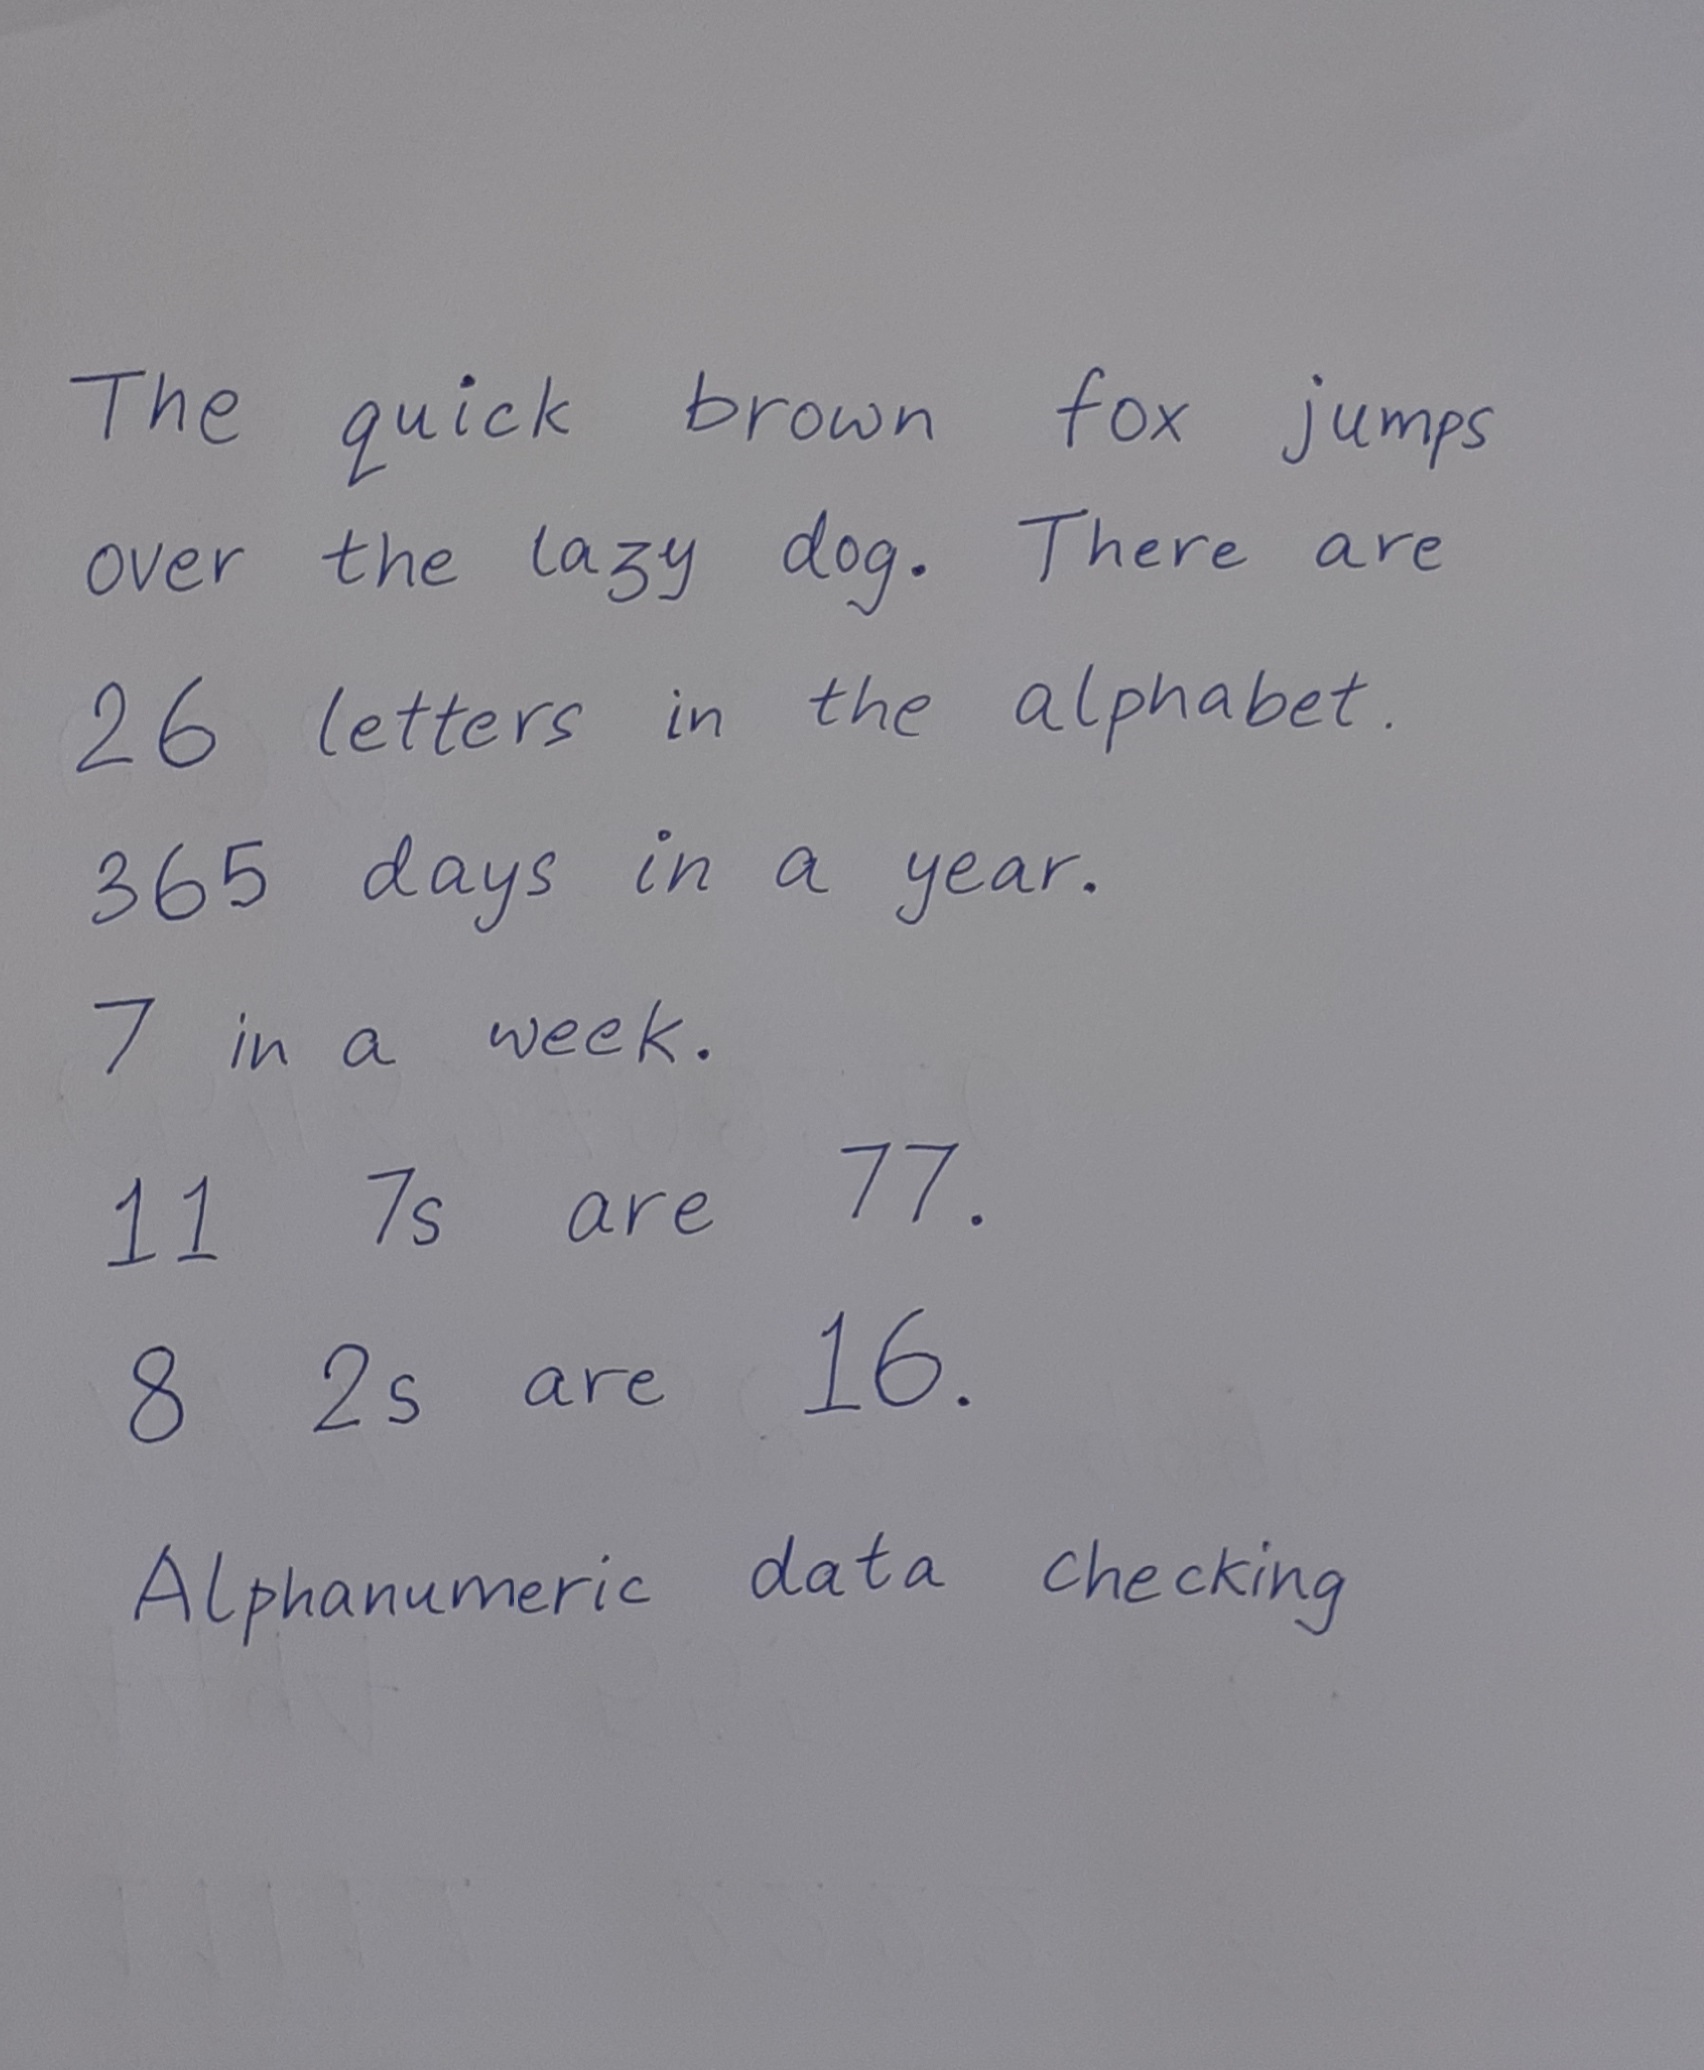 The quick brown fox jumps
over the lazy dog. There are
26 letters in the alphabet.
365 days in a year.
7 in a week.
11 7s are 77.
8 2s are 16.
Alphanumeric data checking